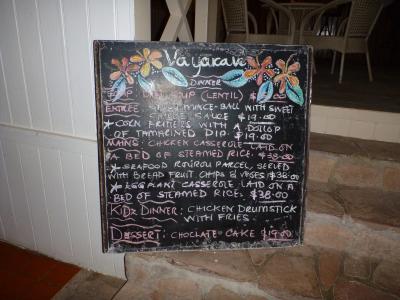 Vayakave
DINNER
SOUP (LENTIL)
ENTREE MINCE-BALL WITH SWEET
SAUCE $19.00
* CORN FRITTERS WITH A DOLLOP
OF TAMARINED DIP $19.00
MAINS: CHICKEN CASSEROLE LAID ON
A BED OF STEAMED RICE. $38.00
* SEAFOOD PARCEL, SERVED
WITH BREAD FRUIT CHIPS & VEGES $38.00
* EGGPLANT CASSEROLE LAID ON A
BED OF STEAMED RICE. $38.00
KIDZ DINNER: CHICKEN DRUMSTICK
WITH FRIES
DESSERT: CHOCLATE CAKE $19.00